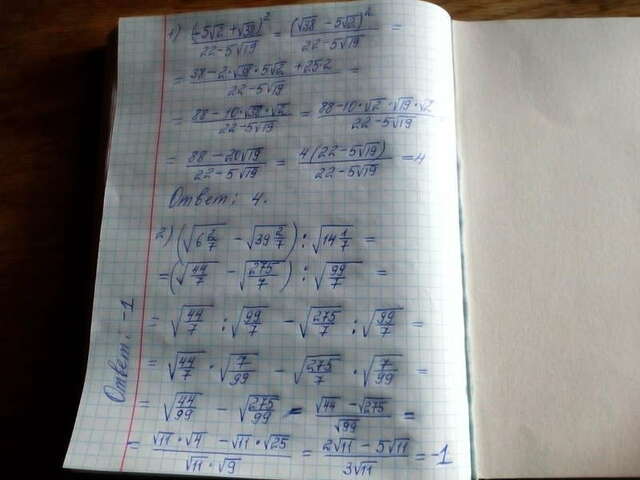 1) (-5√2 + √38)² / (22-5√19) = (√38 - 5√2)² / (22-5√19) =
= (38-2·√38·5√2 + 25·2) / (22-5√19) =
= (88-10·√38·√2) / (22-5√19) = (88-10·√2·√19·√2) / (22-5√19)
= (88-20√19) / (22-5√19) = 4(22-5√19) / (22-5√19) = 4
Ответ: 4.
2) (√(6 2/7) - √(39 2/7)) : √(14 1/7) =
= (√(44/7) - √(275/7)) : √(99/7) =
= √(44/7) : √(99/7) - √(275/7) : √(99/7) =
= √(44/7) · √(7/99) - √(275/7) · √(7/99) =
= √(44/99) - √(275/99) = (√44 - √275) / √99 =
= (√11·√4 - √11·√25) / (√11·√9) = (2√11 - 5√11) / (3√11) = -1
Ответ: -1